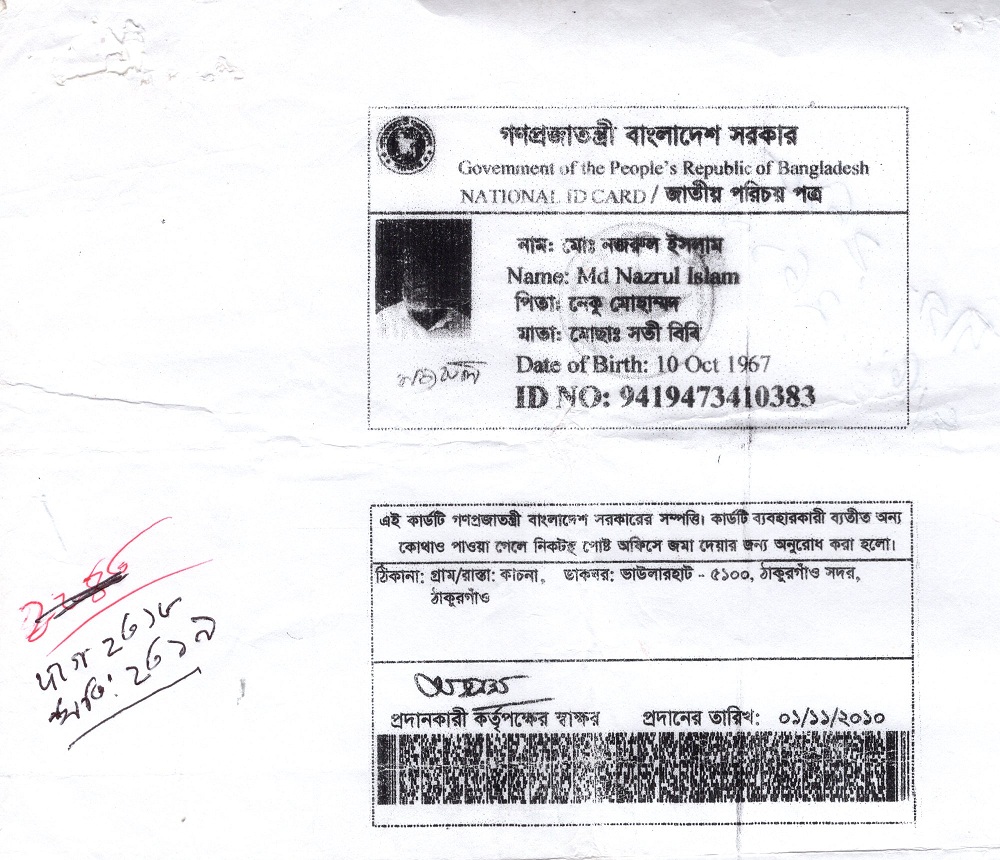 গণপ্রজাতন্ত্রী বাংলাদেশ সরকার
Government of the People's Republic of Bangladesh
NATIONAL ID CARD / জাতীয় পরিচয় পত্র
নাম: মোঃ নজরুল ইসলাম
Name: Md Nazrul Islam
পিতা: নেকু মোহাম্মদ
মাতা: মোছাঃ সতী বিবি
Date of Birth: 10 Oct 1967
ID NO: 9419473410383
এই কার্ডটি গণপ্রজাতন্ত্রী বাংলাদেশ সরকারের সম্পত্তি। কার্ডটি ব্যবহারকারী ব্যতীত অন্য
কোথাও পাওয়া গেলে নিকটস্থ পোষ্ট অফিসে জমা দেয়ার জন্য অনুরোধ করা হলো।
ঠিকানা: গ্রাম/রাস্তা: কাচনা, ডাকঘর: ভাউলারহাট - ৫১০০, ঠাকুরগাঁও সদর,
ঠাকুরগাঁও
দাগ ২৬১৮
২৬১৯
প্রদানকারী কর্তৃপক্ষের স্বাক্ষর প্রদানের তারিখ: ০১/১১/২০১০